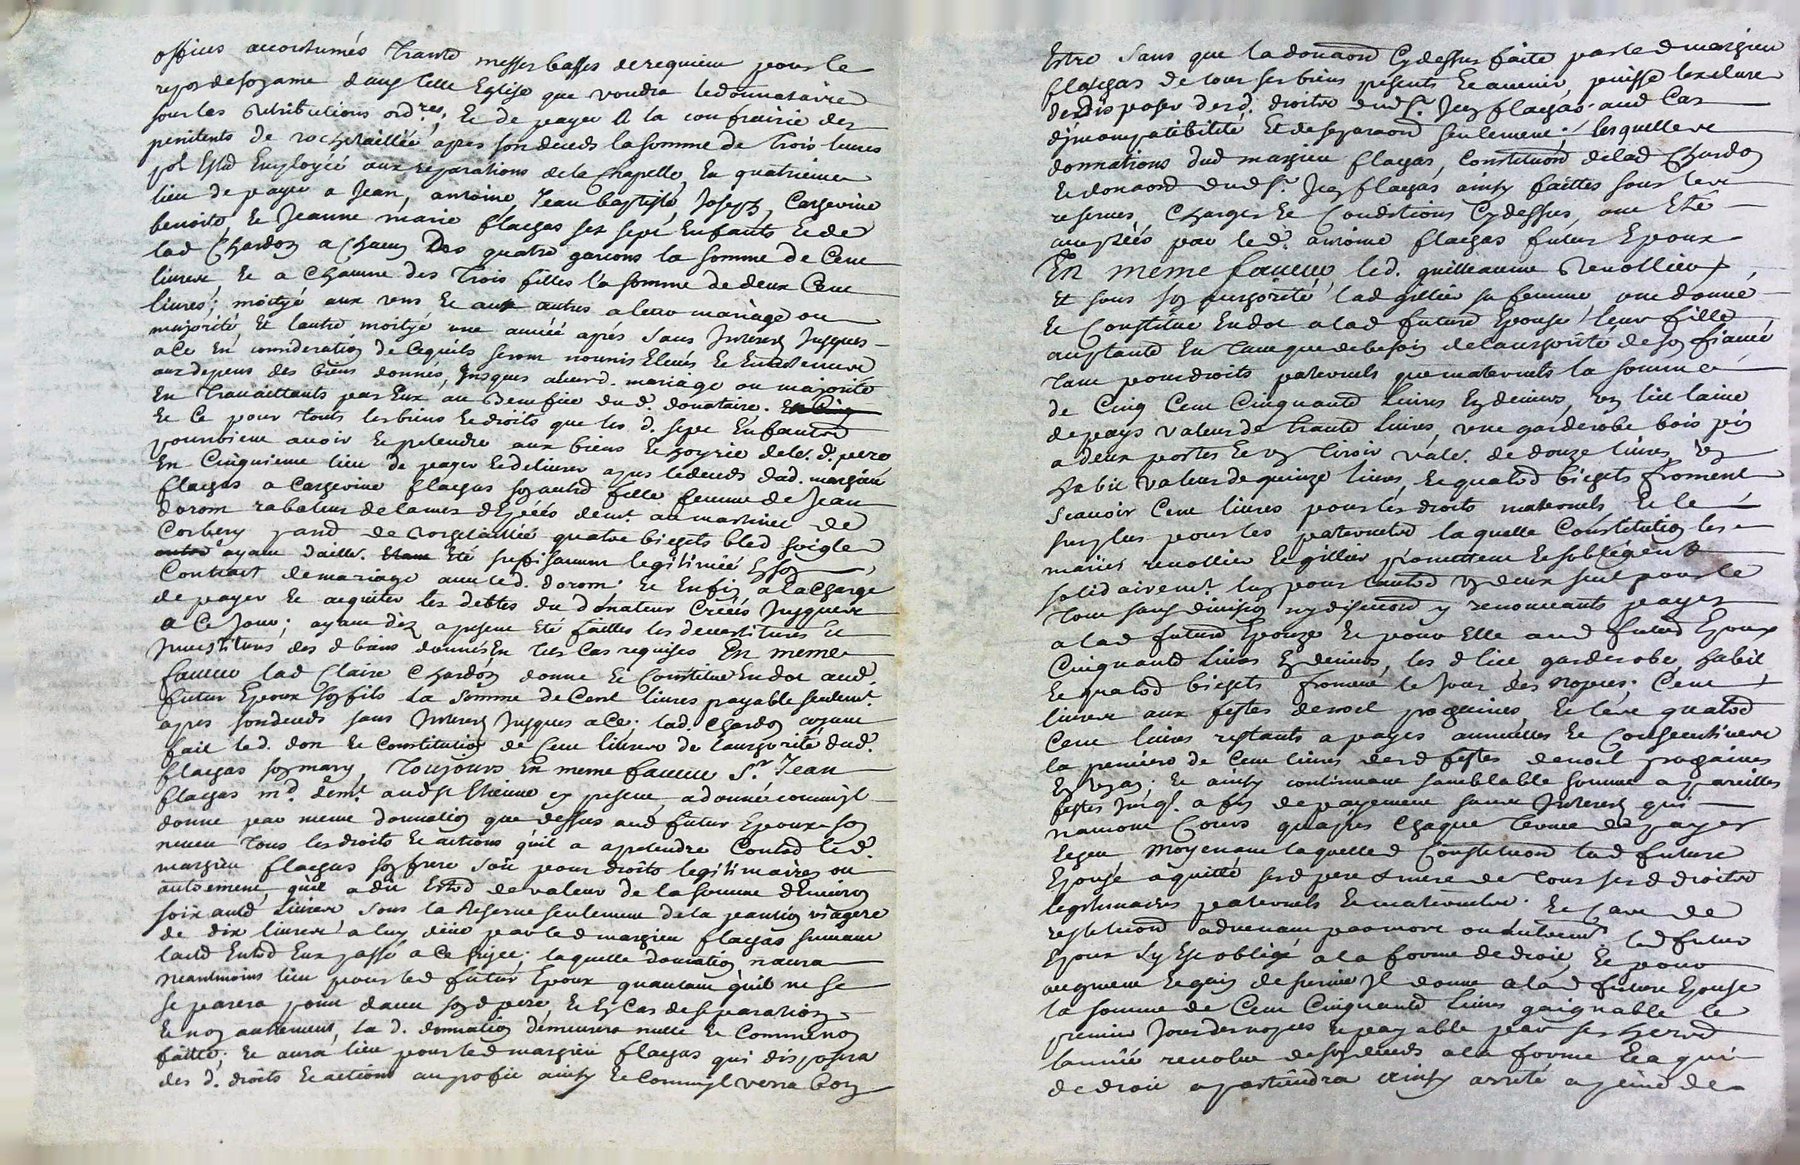 offices accoutumés Trante messes basses de requiem pour le
repos de son ame dans telle Eglise que voudra le donnataire
sous les retributions ord.res; Et de payer A la confrairie des
penitents de rochetaillée apres son deceds la somme de Trois livres
pol Estre Employée aux reparations de la Chapelle, En quatrieme
lieu de payer a Jean, antoine, Jean baptiste, Joseph, Catherine
benoite, Et Jeanne marie flachas ses sept Enfants Et de
lad Chardon a Chacun Des quatre garcons la somme de Cent
livres, Et a Chacune des Trois filles la somme de deux Cent
livres; moityé aux uns Et aux autres a leur mariage ou
majorité, Et lautre moityé une année aprés sans Interest Jusques
a Ce En consideration de Cequils seront nourris Elevés, Et Entretenus
aux depens des biens donnés, Jusques aleurd. mariage ou majorité
En Travaillants par Eux au Benefice dud. donataire.
Et Ce pour Touts les biens Et droits que les d. sept Enfants
pourroient avoir Et pretendre aux biens Et hoyrie de le. d. pere
En Cinquieme lieu de payer Et delivrer apres le deceds dud. margien
flachas a Catherine flachas son autre fille femme de Jean
dorom rabateur de lames d'Epéés demt. au martinet de
Corbery parr. de rochetaillée quatre bichets bled seigle
ayant dailler. Eté suffisamment legitimée En son
Contract de mariage avec led. dorom. Et Enfin a la Charge
de payer Et acquiter les debtes du Donateur Créés Jusques
a Ce Jour; ayant dez a present Eté faittes les devestitures Et
Investitures des d biens donnés En tels Cas requises En meme
faveur lad Claire Chardon donne Et Constitue En dot aud.
futur Epoux son fils la somme de Cent livres payable seulemt.
apres son deceds sans Interest Jusques a Ce; lad. Chardon ayant
fait led. don Et Constitution de Cent livres de l'authorité dud.
flachas son mary, Toujours En meme faveur S.r Jean
flachas md. demt. aud St Etienne Cy present, a donné comme il
donne par meme donnation que dessus aud futur Epoux son
neveu Tous les droits Et actions qu'il a apretendre Contre led.
margien flachas son frere Soit pour droits legitimaires ou
autrement, qu'il a dit Estre de valeur de la somme d'Environ
soixante Livres sous la Reserve seulement de la pention viagere
de dix livres a luy deue par led margien flachas suivant
lacte Entre Eux passé a Ce sujet; laquelle donnation n'aura
neantmoins lieu pour led futur Epoux quautant quil ne se
separera point davec sond pere, Et En Cas de separation
Et non autrement, la d. donnation demeurera nulle Et Comme non
faitte; Et aura lieu pour led margien flachas qui disposera
des d. droits Et actions au profit ainsy Et Comme il verra bon
Estre Sans que la donaon Cy dessus faite par led margien
flachas de tous ses biens presents Et avenir, puisse l'exclure
de disposer desd. droits dud S.r Jean flachas aud Cas
d'jncompatibilité Et de separaon seulement; lesquelles
donnations dud margien flachas, Constituon de lad Chardon
Et donaon dud S.r Jean flachas, ainsy faittes sous les
reserves, Charges Et Conditions Cy dessus, ont Eté
acceptéés par led. antoine flachas futur Epoux
En meme faveur, led. guilleaume Revollier,
Et sous son authorité lad gillier sa femme, ont donné
Et Constitué En dot a lad future Epouse leur fille
acceptante En Tant que de besoin de l'authorité de son fiancé
Tant pour droits paternels que maternels la somme
de Cinq Cent Cinquante Livres En deniers, Un lict laine
de pays valeur de Trante Livres, une garderobe bois pin
a deux portes Et un Tiroir Vale. de douze livres, Un
habit valeur de quinze livres, Et quatre bichets froment
Scavoir Cent livres pour les droits maternels, Et le
surplus pour les paternels laquelle Constitution les
mariés revollier Et gillier promettent Et s'obligent
solidairemt. lun pour l'autre Un deux seul pour le
Tout sans division ny discution y renoncants payer
a lad future Epouze Et pour Elle aud futur Epoux
Cinquante Livres En deniers, les d lict garderobe, habit
Et quatre bichets froment le Jour des nopces; Cent
livres aux festes de noel prochaines, Et les quatre
Cent livres restants a payer annuelles Et Consecutives
la premiere de Cent livres desd festes de noel prochaines
En Un an; Et ainsy continuant semblable somme a pareilles
festes Jusq. a fin de payement sans Interest qui
nauront Cours quapres Chaque Terme de payer
Echeu, Moyenant laquelle d Constituon lad future
Epouse a quitté sesd pere Et mere de Tous sesd droits
legitimaires paternels Et maternels. Et Cas de
restituon advenant par mort ou Autremt. led futur
Epoux sy Est obligé a la forme de droit, Et pour
augment Et gain de survie Jl donne a lad future Epouse
la somme de Cent Cinquante Livres gaignable le
premier Jour des nopces Et payable par ses heres
lannéé revolue de son deceds a la forme Et a qui
de droit apartiendra ainsy arreté a peine de